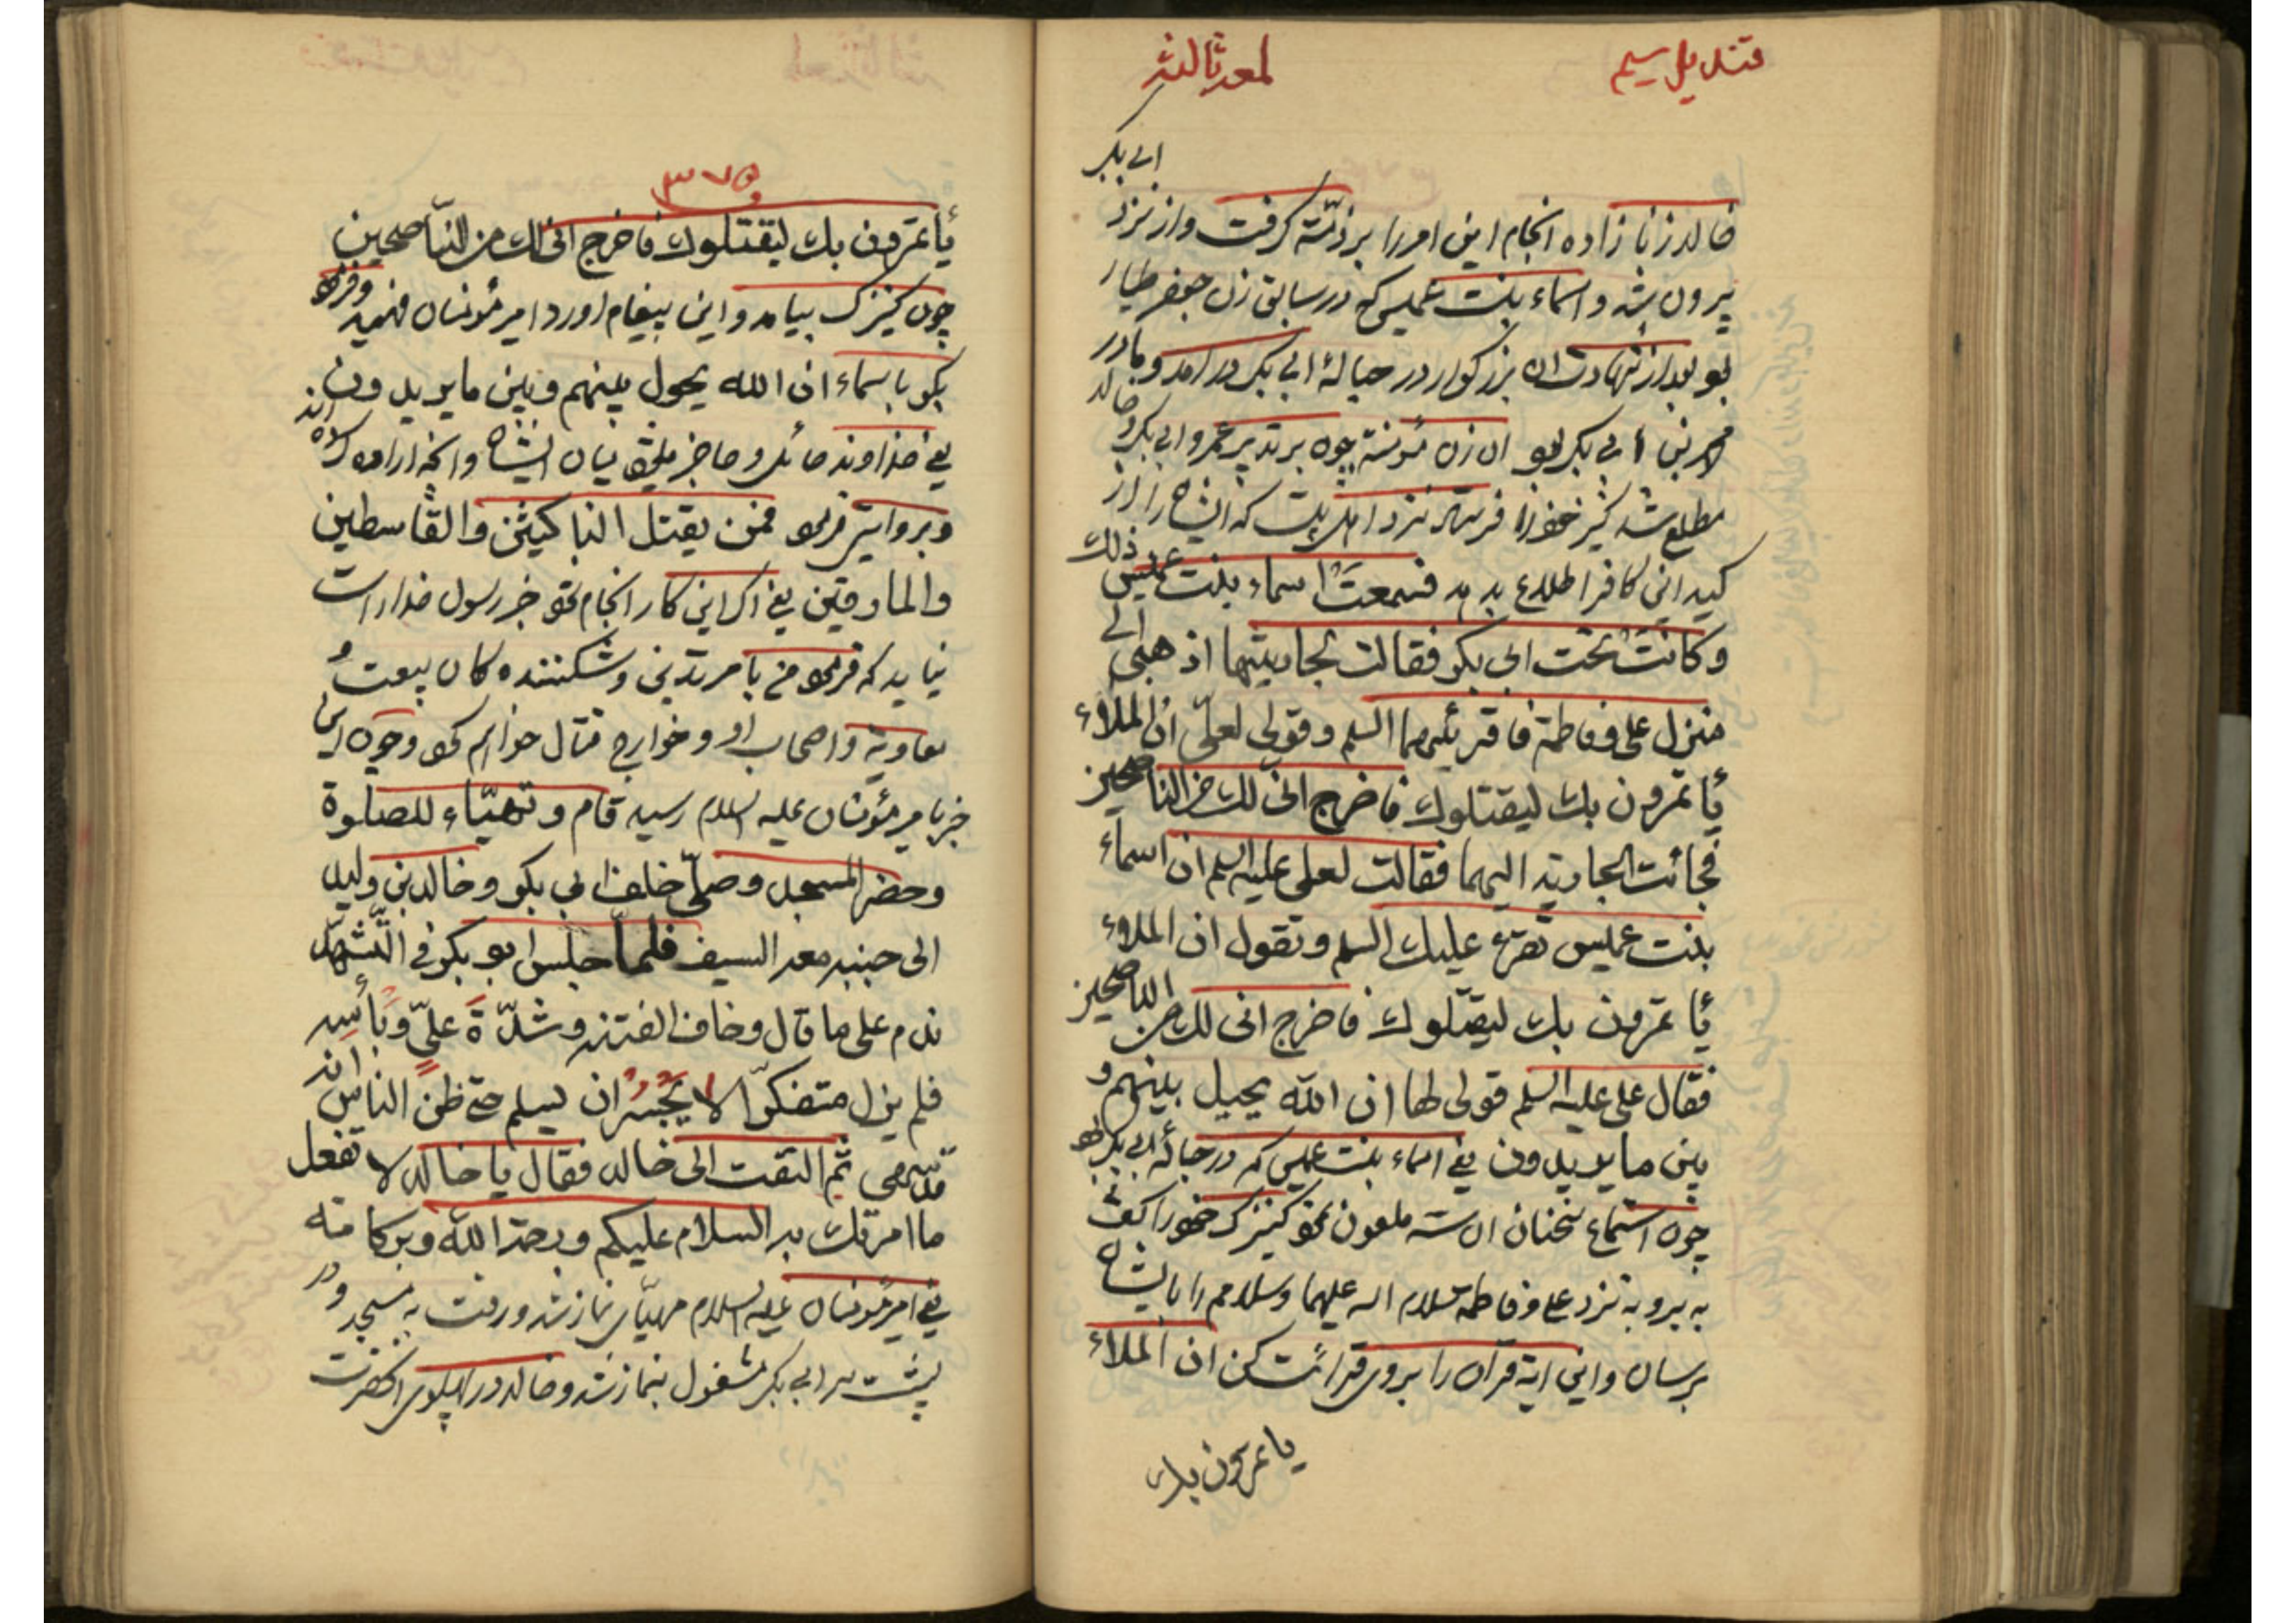 قندیل سیم
لمعه ثالثه
خالد زنا زاده انجام این امر را بر ذمّته گرفت و از نزد ابی بکر
بیرون شد و اسماء بنت عمیس که در سابق زن جعفر طیار
بود بعد از شهادت ان بزرکوار در حبالهٔ ابی بکر در امد و مادر
محمد بن ابی بکر بود ان زن مؤمنة چون بر تدبیر عمر و ابی بکر و خالد
مطلع شد کنیز خود را فرستاد نزد اهل بیت که ایشان را از
کید این کافر اطلاع بدهد فسمعت اسماء بنت عمیس ذلك
وکانت تحت ابی بکر فقالت لجاریتها اذهبی الی
منزل علی و فاطمة فاقرئیهما السلم وقولی لعلی ان الملاء
یأتمرون بك لیقتلوك فاخرج انی لك من الناصحین
فجائت الجاریة الیهما فقالت لعلی علیه السلم ان اسماء
بنت عمیس تقرء علیك السلم وتقول ان الملاء
یأتمرون بك لیقتلوك فاخرج انی لك من الناصحین
فقال علی علیه السلم قولی لها ان الله یحیل بینهم و
بین ما یریدون یعنی اسماء بنت عمیس که در حبالهٔ ابی بکر بود
چون استماع سخنان ان سه ملعون نمود کنیزک خود را کفت
به برو به نزد علی و فاطمه سلام اله علیهما وسلامم را بایشان
برسان و این ایة قران را بر وی قرائت کن ان الملاء
یاتمرون بك
۳۷۵
یأتمرون بك لیقتلوك فاخرج انی لك من النّاصحین
چون کنیزک بیامد و این پیغام اورد امیر مؤمنان فهمید و فرمود
بکو باسماء ان الله یحول بینهم وبین ما یریدون
یعنی خداوند حائل و حاضر میان ایشان و انچه اراده کرده اند
وبروایتی فرمود فمن یقتل الناکثین والقاسطین
والمارقین یعنی اکر این کار انجام خبر رسول خدا راست
نیاید که فرمود من با مرتدین و شکننده کان بیعت و
معاویة و اصحاب او و خوارج قتال خواهم کرد و چون این
خبر بامیر مؤمنان علیه السلام رسید قام وتهیّاء للصلوة
وحضر المسجد وصلّی خلف ابی بکر وخالد بن ولید
الی جنبه معه السیف فلمّا جلس ابو بکر فی التّشهّد
ندم علی ما قال وخاف الفتنة وشدّة علیّ وبأسه
فلم یزل متفکرّا لا یجسر ان یسلم حتی ظن الناس انه
قد سهی ثم التفت الی خالد فقال یا خالد لا تفعل
ما امرتك به السلام علیکم ورحمة الله وبرکاته
یعنی امیر مؤمنان علیه السلام مهیّای نماز شد و رفت به مسجد و در
پشت سر ابی بکر مشغول بنماز شد و خالد در پهلوی انحضرت